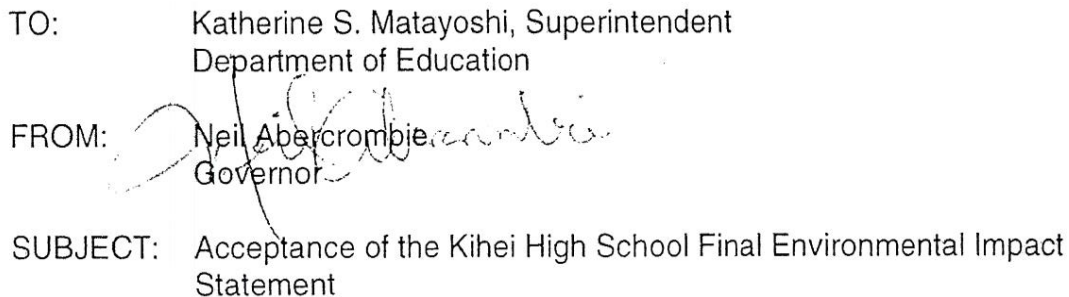 TO: Katherine S. Matayoshi, Superintendent
Department of Education
FROM: Neil Abercrombie
Governor
SUBJECT: Acceptance of the Kihei High School Final Environmental Impact
Statement